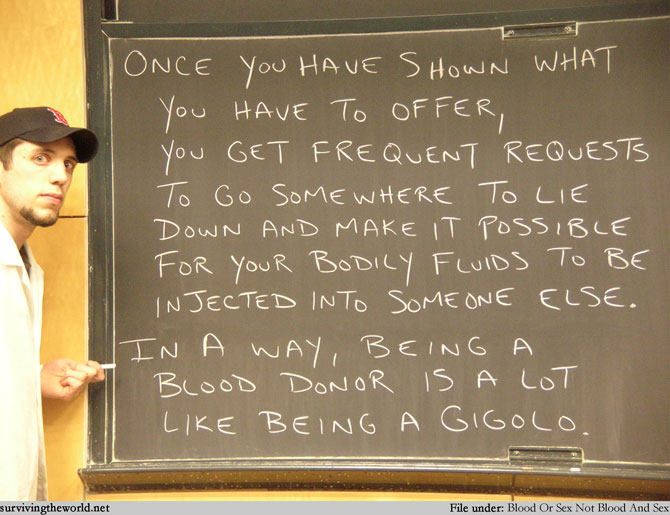 ONCE YOU HAVE SHOWN WHAT
YOU HAVE TO OFFER,
YOU GET FREQUENT REQUESTS
TO GO SOMEWHERE TO LIE
DOWN AND MAKE IT POSSIBLE
FOR YOUR BODILY FLUIDS TO BE
INJECTED INTO SOMEONE ELSE.
IN A WAY, BEING A
BLOOD DONOR IS A LOT
LIKE BEING A GIGOLO.
survivingtheworld.net
File under: Blood Or Sex Not Blood And Sex